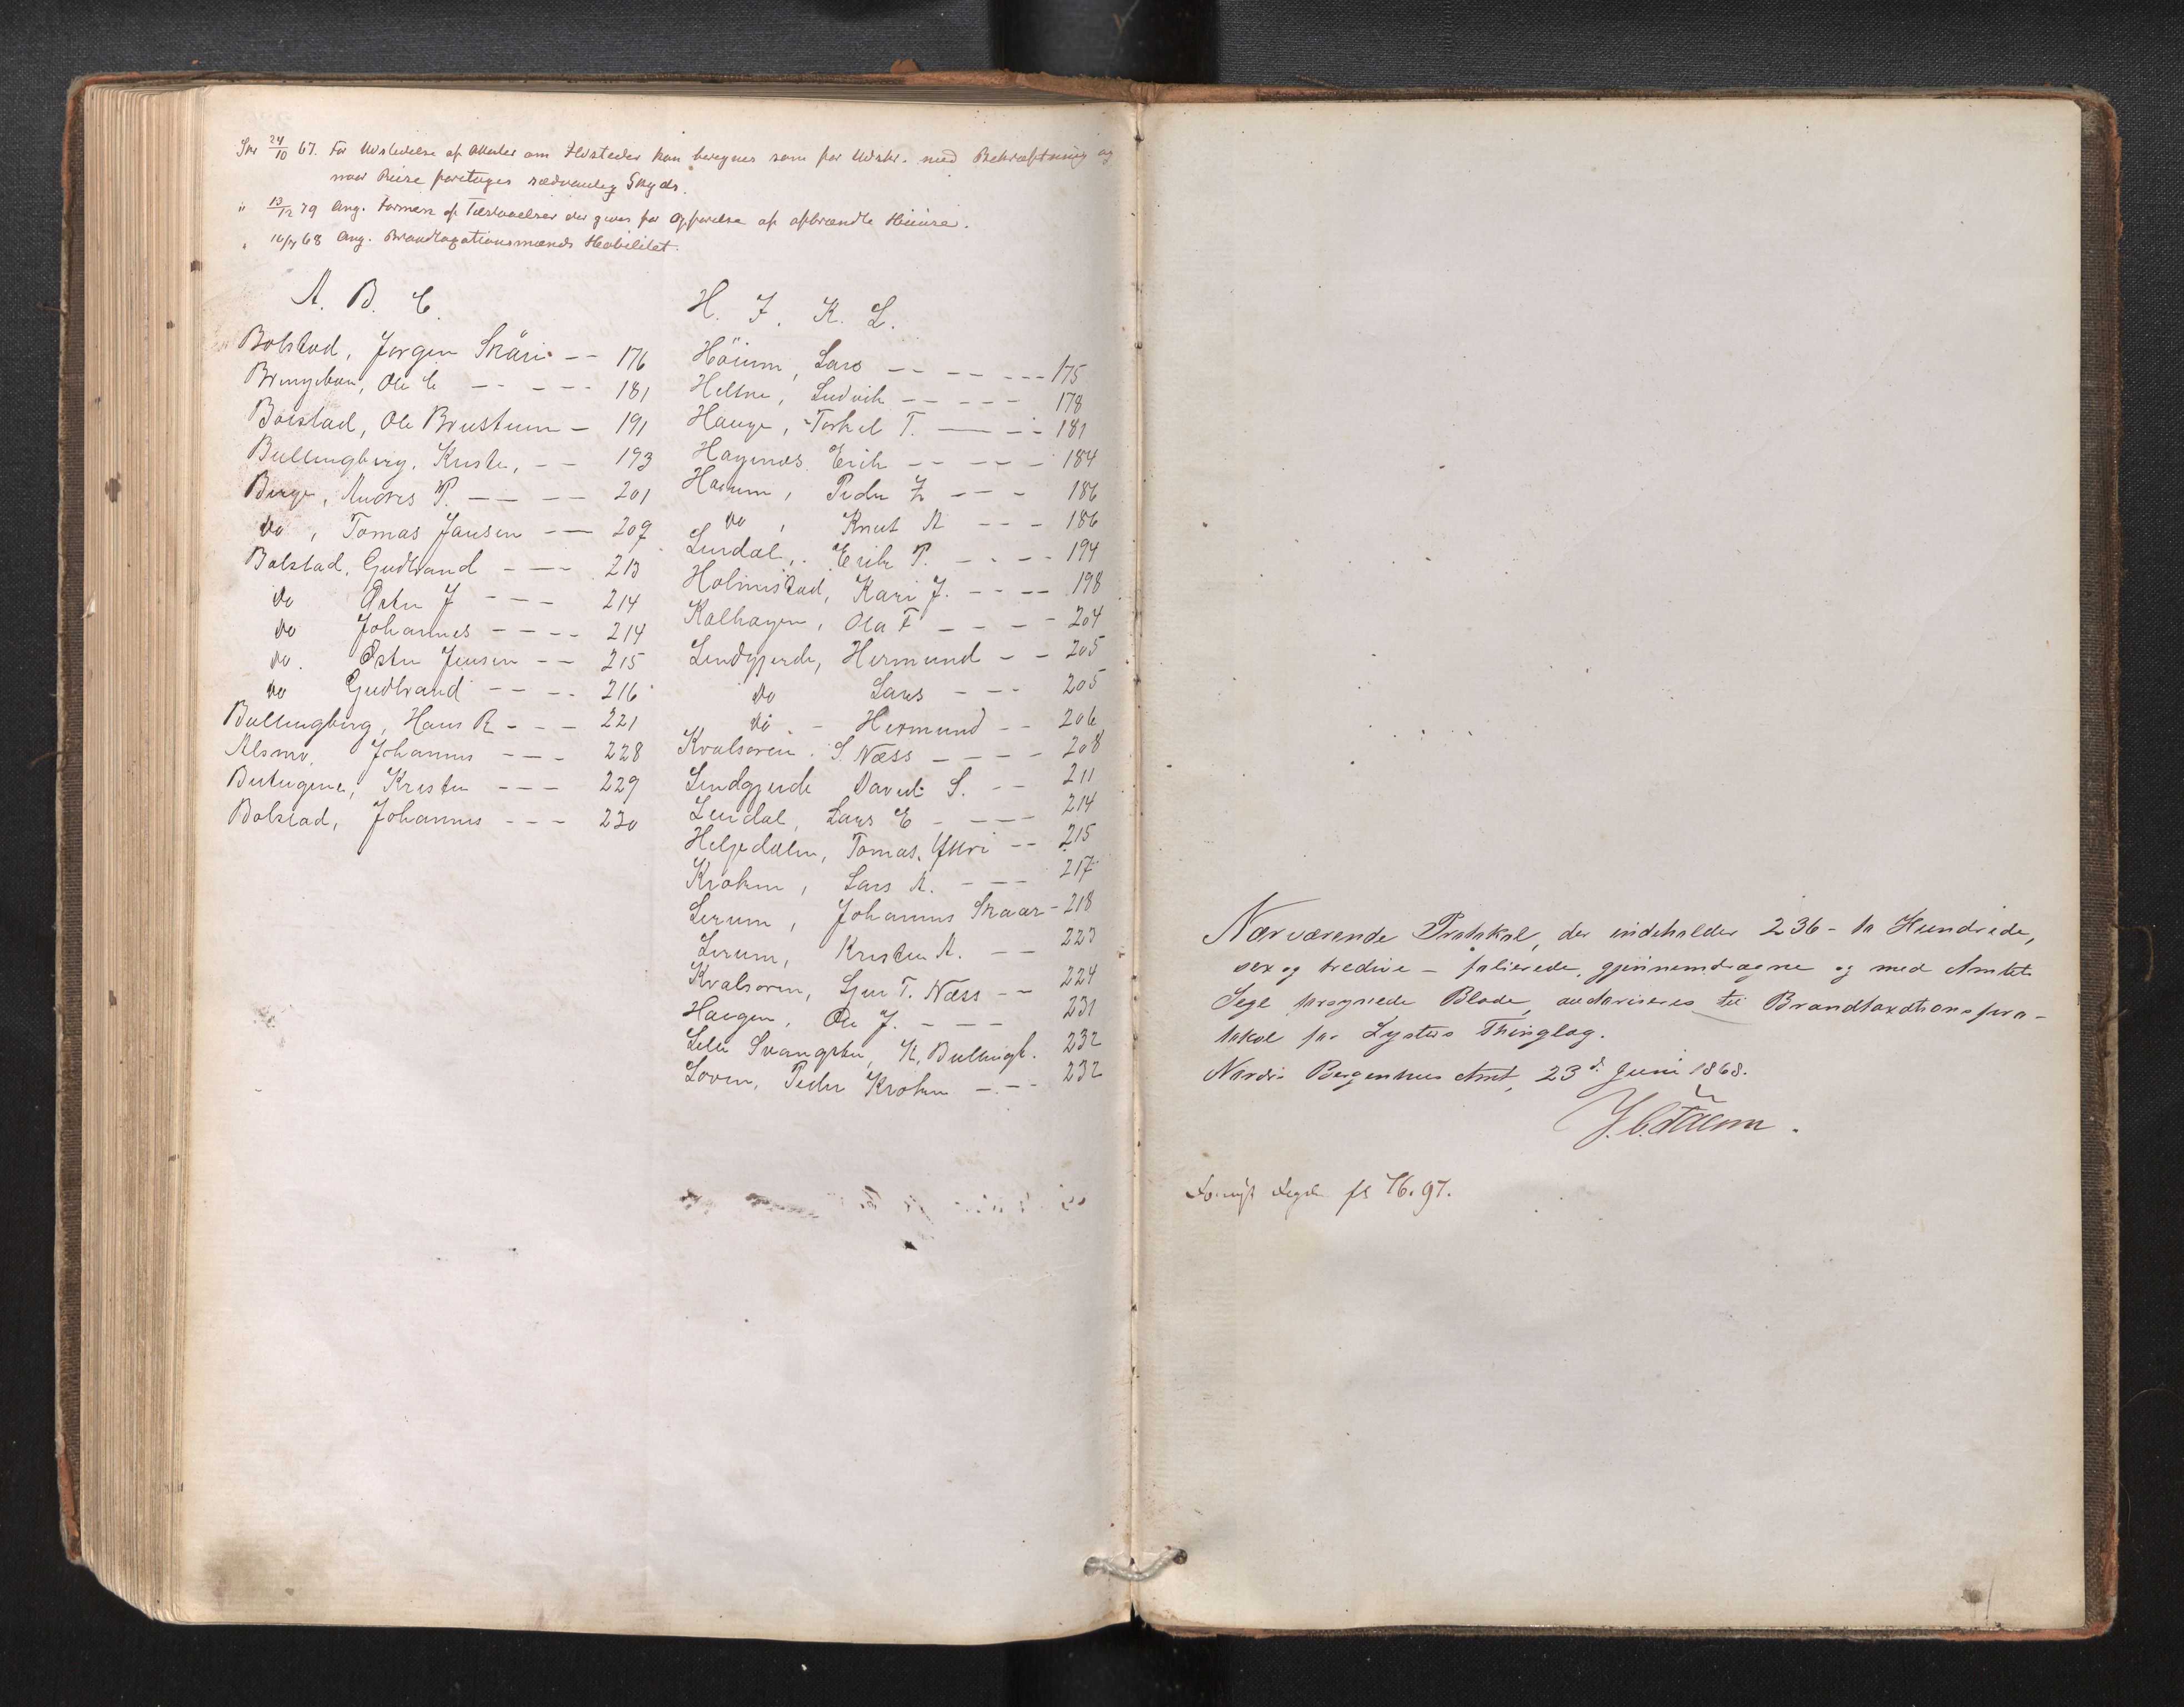 Skr 24/10 67. For Udstedelse af Attester om Ildsteder kan beregnes som for Udskr. med Bekræftning og
naar Reise foretages sædvanlig Skyds.
" 13/12 79 Ang. Formen af Tilstaaelser der gives for Opførelse af afbrændte Huuse.
" 16/9 68 Ang. Brandtaxationsmænds Habilitet.
A. B. C.
Bolstad, Jørgen Skåri -- 176
Ole C ---- 181
Bolstad, Ole Brustuen - 191
Bullingberg, Kristen, -- 193
Berge, Andres P. ---- 201
do, Tomas Jansen --- 209
Bolstad, Gudbrand --- 213
do Østen J --- 214
do Johannes ---- 214
do. Østen Jensen -- 215
do Gudbrand ---- 216
Bullingberg, Hans R --- 221
Alsmo, Johannes --- 228
Kristen --- 229
Bolstad, Johannes --- 230
H. J. K. L.
Höium, Lars ------- 175
Heltne, Ludvik ----- 178
Hauge, Torkel T. ---- 181
Hagenæs Erik ----- 184
Haeum, Peder Z --- 186
do, Knut A --- 186
Lerdal, Erik P. ---- 194
Holmstad, Kari J. ---- 198
Kalhagen, Ola F ---- 204
Lindgjerde, Hermund -- 205
do Lars --- 205
do - Hermund -- 206
Kvalsoren. S. Næss ---- 208
Lindgjerde David S. -- 211
Lerdal, Lars E ---- 214
Helgedalen, Tomas, -- 215
Kroken, Lars A. --- 217
Lerum, Johannes Skaar - 218
Lerum, Kristen A. -- 223
Kvalsoren, T. Næss -- 224
Haugen, Ole J. --- 231
Lille Svangstu, K. Bullingb. 232
Loven, Peder Kroken --- 232
Nærværende Protokol, der indeholder 236 - to Hundrede,
sex og tredive - folierede, gjennemdragne og med Amtets
Segl forsynede Blade, autoriseres til Brandtaxationspro-
tokol for Lysters Thinglag.
Nordre Bergenhus Amt, 23d. Juni 1868.
fl 76. 97.